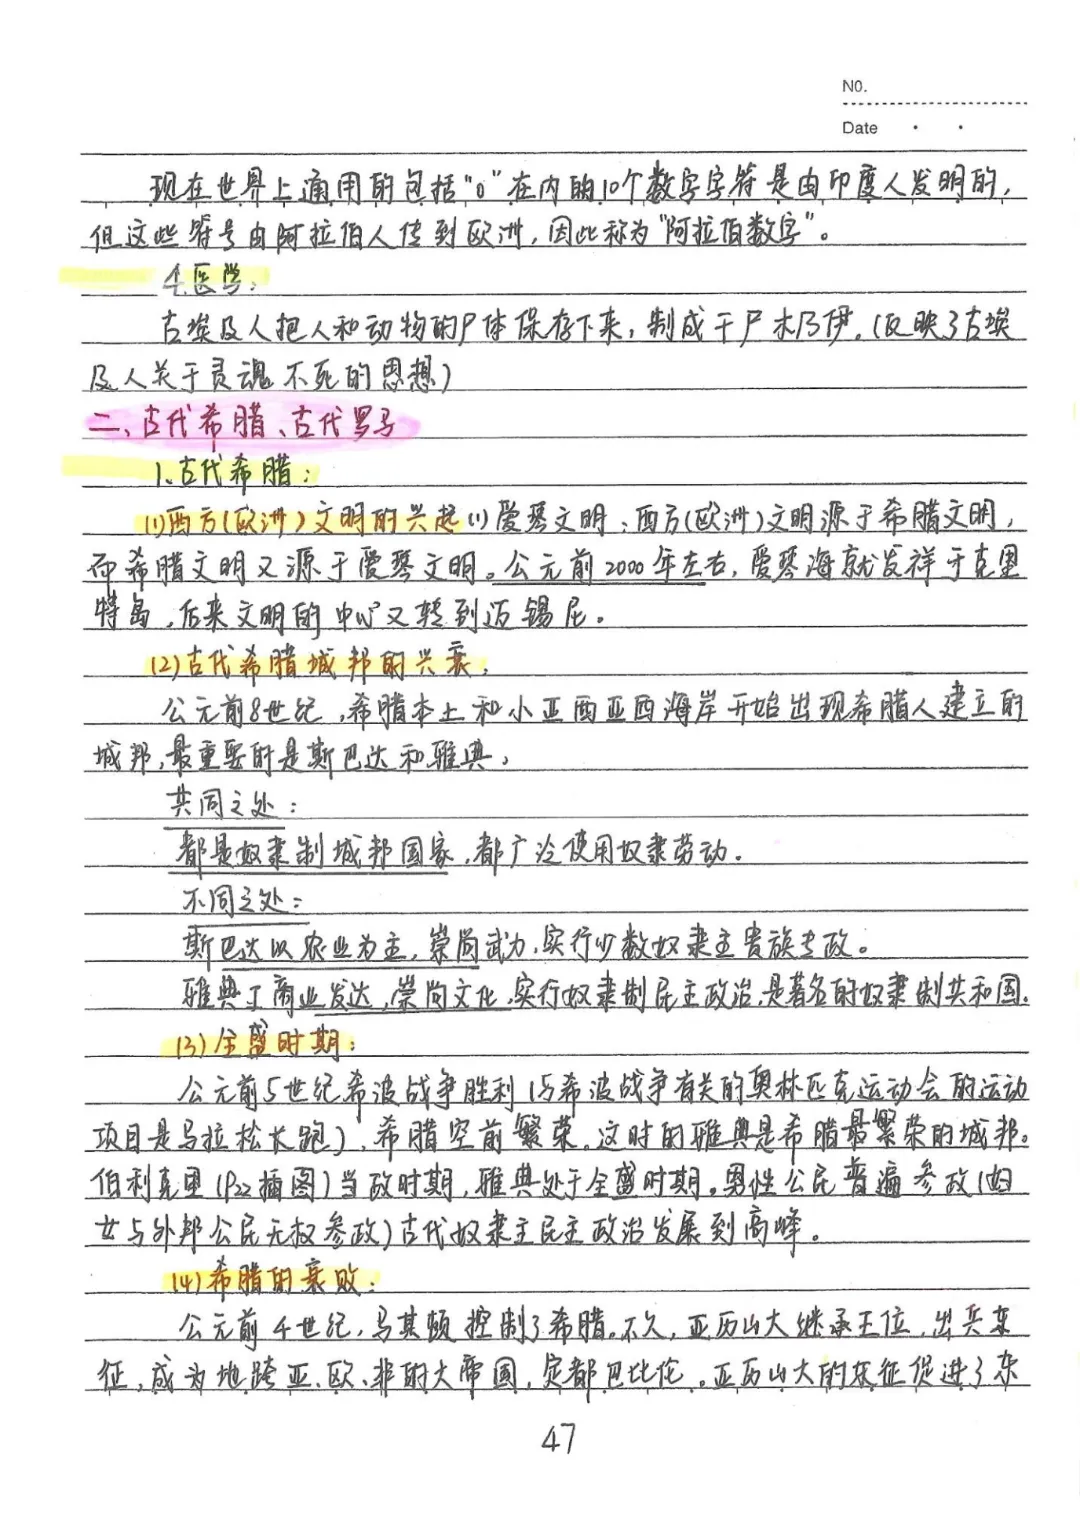 NO.
Date
现在世界上通用的包括"0"在内的10个数字字符是由印度人发明的,
但这些符号由阿拉伯人传到欧洲,因此称为"阿拉伯数字"。
4.医学:
古埃及人把人和动物的尸体保存下来,制成干尸木乃伊。(反映了古埃
及人关于灵魂不死的思想)
二、古代希腊、古代罗马
1.古代希腊:
(1)西方(欧洲)文明的兴起(1)爱琴文明:西方(欧洲)文明源于希腊文明,
而希腊文明又源于爱琴文明。公元前2000年左右,爱琴海就发祥于克里
特岛,后来文明的中心又转到迈锡尼。
(2)古代希腊城邦的兴衰:
公元前8世纪,希腊本土和小亚西亚西海岸开始出现希腊人建立的
城邦,最重要的是斯巴达和雅典。
共同之处:
都是奴隶制城邦国家,都广泛使用奴隶劳动.
不同之处:
斯巴达以农业为主,崇尚武力,实行少数奴隶主贵族专政。
雅典工商业发达,崇尚文化,实行奴隶制民主政治,是著名的奴隶制共和国.
(3)全盛时期:
公元前5世纪希波战争胜利(与希波战争有关的奥林匹克运动会的运动
项目是马拉松长跑),希腊空前繁荣.这时的雅典是希腊最繁荣的城邦。
伯利克里(P22插图)当政时期,雅典处于全盛时期。男性公民普遍参政(妇
女与外邦公民无权参政)古代奴隶主民主政治发展到高峰。
(4)希腊的衰败:
公元前4世纪,马其顿控制了希腊。不久,亚历山大继承王位,出兵东
征,成为地跨亚、欧、非的大帝国,定都巴比伦。亚历山大的东征促进了东
47